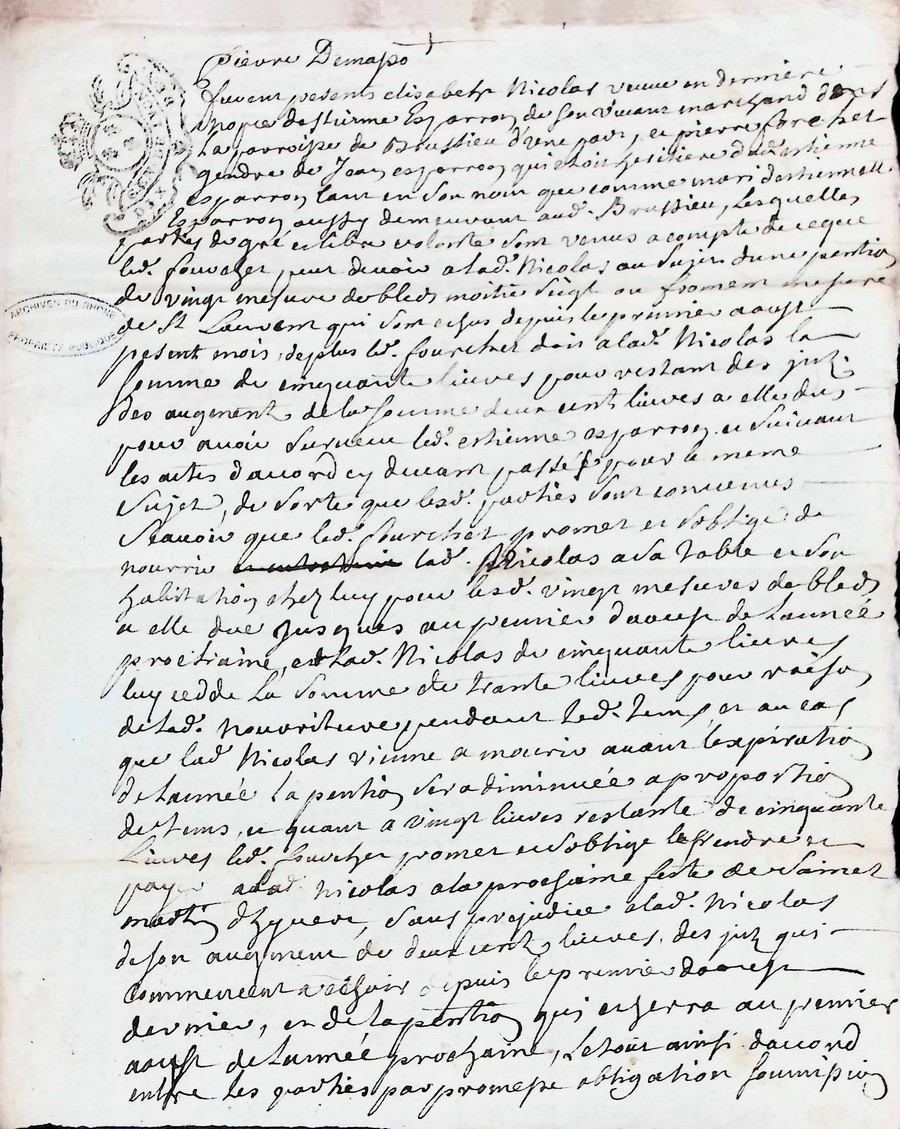 pierre Demaso
furent presents elisabeth Nicolas veuve en derniere
nopce destienne Esparron de son vivant marchand dans
la parroisse de Brussieu d'une part, et pierre forchet
gendre de Jean esparron qui etoit heritiere dud. estienne
esparron tant en son nom que comme mari destiennette
Esparron aussy demeurant aud. Brussieu, Lesquelles
parties de gré et libre volonté sont venus a compte de ce que
led. fourchet peut devoir a lad. Nicolas au sujet dune pention
de vingt mesure de bled moitié seigl ou froment mesure
de St Laurent qui sont echus depuis le premier aoust
ARCHIVES DU RHONE
PROPRIETE PUBLIQUE
present mois, de plus led. fourchet doit a lad. Nicolas la
somme de cinquante livres pour restant des
des augment de la somme deux cent livres a elle dus
pour avoir survecu led. estienne esparron et suivant
les actes daccord cy devant passés pour le meme
sujet, de sorte que lesd. parties sont convenues
scavoir que led. fourchet promet et soblige de
nourrir lad. Nicolas a sa table et son
habitation chez luy pour lesd. vingt mesures de bled
a elle due jusques au premier daoust de Lannée
prochaine, et lad. Nicolas de cinquante livres
luy cedde La somme de trante livres pour raison
de lad. nourriture pendant led. tems, et au cas
que lad. Nicolas vienne a mourir avant lexpiration
de Lannée la pention sera diminuée a proportion
de tems, et quant a vingt livres restante de cinquante
Livres led. fourchet promet et soblige les rendre et
payer a lad. Nicolas a la prochaine feste de Sainct
martin dhyvert, sans prejudice a lad. Nicolas
de son augment de deux cent livres, des qui
commencent a echoir depuis le premier daoust
dernier, et de la pention qui echerra au premier
aoust de Lannée prochaine, Le tout ainsi daccord
entre les parties par promesse obligation soumission